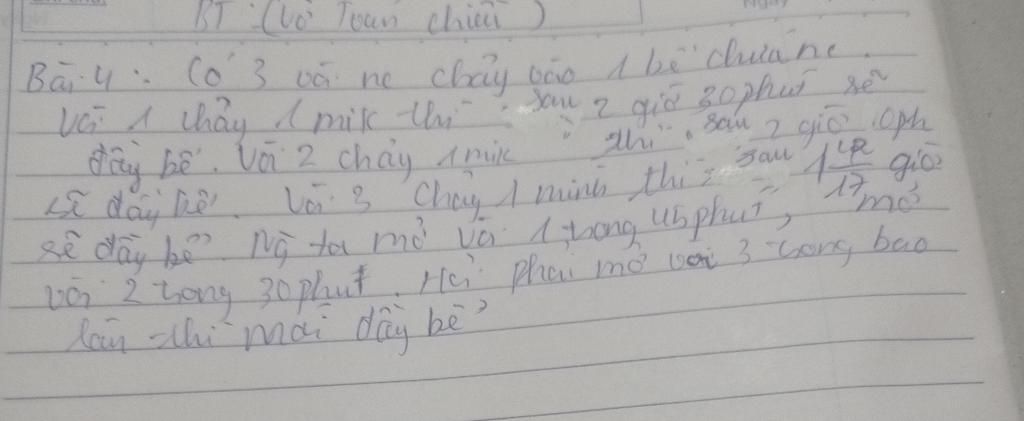 BT: (Vở Toán chiều)
Bài 4: Có 3 vòi nc chảy vào 1 bể chứa nc.
Vòi 1 chảy 1 mik thì sau 2 giờ 30 phút sẽ
đầy bể. Vòi 2 chảy 1 mik thì sau 2 giờ ph
sẽ đầy bể. Vòi 3 chảy 1 mình thì sau 1 17 giờ
sẽ đầy bể. Ng ta mở vòi 1 trong 45 phút, mở
vòi 2 trong 30 phút. Hỏi phải mở vòi 3 trong bao
lâu thì mới đầy bể?